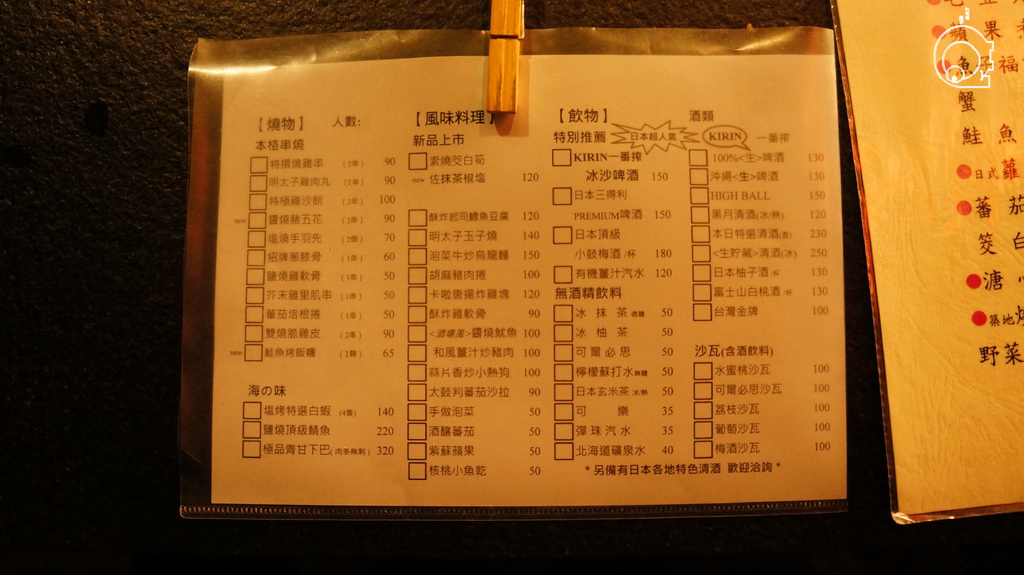 【燒物】 人數:
本格串燒
特撰燒雞串 (2串) 90
明太子雞肉丸 (2串) 90
特極雞沙朗 (2串) 100
new 醬燒豬五花 (2串) 90
塩燒手羽先 (2個) 70
招牌蔥膝骨 (1串) 60
鹽燒雞軟骨 (1串) 50
芥末雞里肌串 (1串) 50
蕃茄培根捲 (1串) 50
雙燒脆雞皮 (2串) 90
new 鮭魚烤飯糰 (1顆) 65
海の味
塩烤特選白蝦 (4隻) 140
鹽燒頂級鯖魚 220
極品青甘下巴(肉多無刺) 320
【風味料理】
新品上市
素燒茭白筍
new 佐抹茶椒塩 120
酥炸起司鱈魚豆腐 120
明太子玉子燒 140
泡菜牛炒烏龍麵 150
胡麻豬肉捲 100
卡啦唐揚炸雞塊 120
酥炸雞軟骨 90
<酒場風>醬燒魷魚 100
和風薑汁炒豬肉 100
蒜片香炒小熱狗 100
太鼓判蕃茄沙拉 90
手做泡菜 50
酒釀蕃茄 50
紫蘇蘋果 50
核桃小魚乾 50
【飲物】
特別推薦 日本超人氣
KIRIN一番搾
冰沙啤酒 150
日本三得利
PREMIUM啤酒 150
日本頂級
小鼓梅酒 /杯 180
有機薑汁汽水 120
無酒精飲料
冰 抹 茶 微糖 50
冰 柚 茶 50
可 爾 必 思 50
檸檬蘇打水 無糖 50
日本玄米茶 冰/熱 50
可 樂 35
彈 珠 汽 水 35
北海道礦泉水 40
酒類
KIRIN 一番搾
100%<生>啤酒 130
沖繩<生>啤酒 130
HIGH BALL 150
黑月清酒(冰/熱) 120
本日特選清酒(壺) 230
<生貯藏>清酒(冰) 250
日本柚子酒 /杯 130
富士山白桃酒 /杯 130
台灣金牌 100
沙瓦(含酒飲料)
水蜜桃沙瓦 100
可爾必思沙瓦 100
荔枝沙瓦 100
葡萄沙瓦 100
梅酒沙瓦 100
* 另備有日本各地特色清酒 歡迎洽詢 *
蘋 果
魚 子 福
蟹
鮭 魚
日式 蘿
蕃 茄
筊 白
溏 心
築地 燒
野 菜